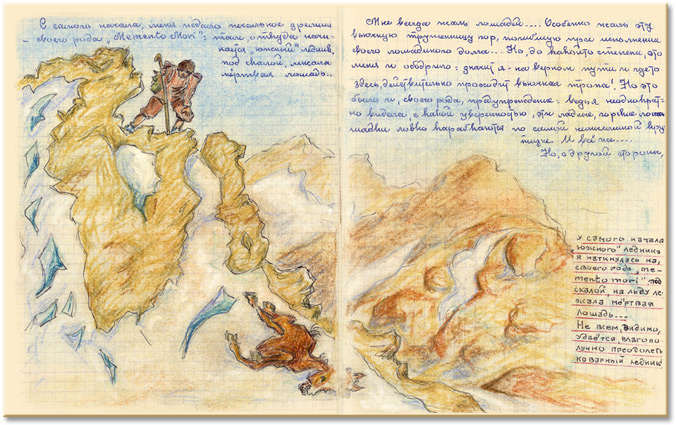 С самого начала, меня ждало печальное зрелище
своего рода, „Memento Mori“: там откуда начи-
нается „южный“ ледник,
под скалой, лежала
мёртвая лошадь..
Мне всегда жаль лошадей.... Особенно жаль эту
вьючную труженицу гор, погибшую при исполнении
своего лошадиного долга... Но, до какой-то степени, это
меня и ободрило: значит я - на верном пути и где-то
здесь, действительно проходит вьючная тропа! Но это
было и, своего рода, предупреждение: ведь я неоднократ-
но видела, с какой уверенностью, эти ладные, горные лоша-
шадки ловко карабкаются по самой немыслимой кру
тизне. И всё же....
Но, с другой стороны,
У самого начала
„южного“ ледника
я наткнулась на,
своего рода, „me-
mento mori“, под
скалой, на льду ле-
жала мёртвая
лошадь...
Не всем, видимо,
удаётся, благопо
лучно преодолеть
коварный ледник!